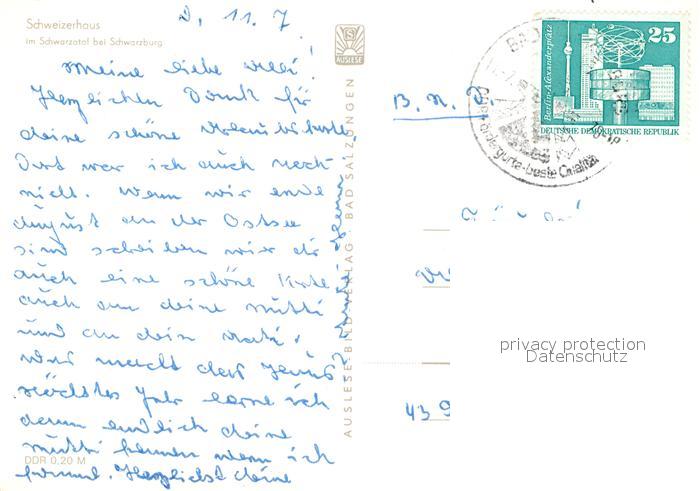 Schweizerhaus
im Schwarzatal bei Schwarzburg
D, 11. 7.
Meine liebe Willi!
Herzlichen Dank für
deine schöne Urlaubskarte
Dort war ich auch noch
nicht. Wenn wir ende
August an der Ostsee
sind schreiben wir dir
auch eine schöne Karte
auch an deine Mutti
und an dein Vati.
Was macht das
nächstes Jahr lerne ich
dann endlich deine
Mutti kennen wenn ich
komme. Herzlichst deine
DDR 0,20 M
AUSLESE
AUSLESE-BILD-VERLAG · BAD SALZUNGEN
25
Berlin-Alexanderplatz
DEUTSCHE DEMOKRATISCHE REPUBLIK
BAD
beste Qualität
privacy protection
Datenschutz
43 9